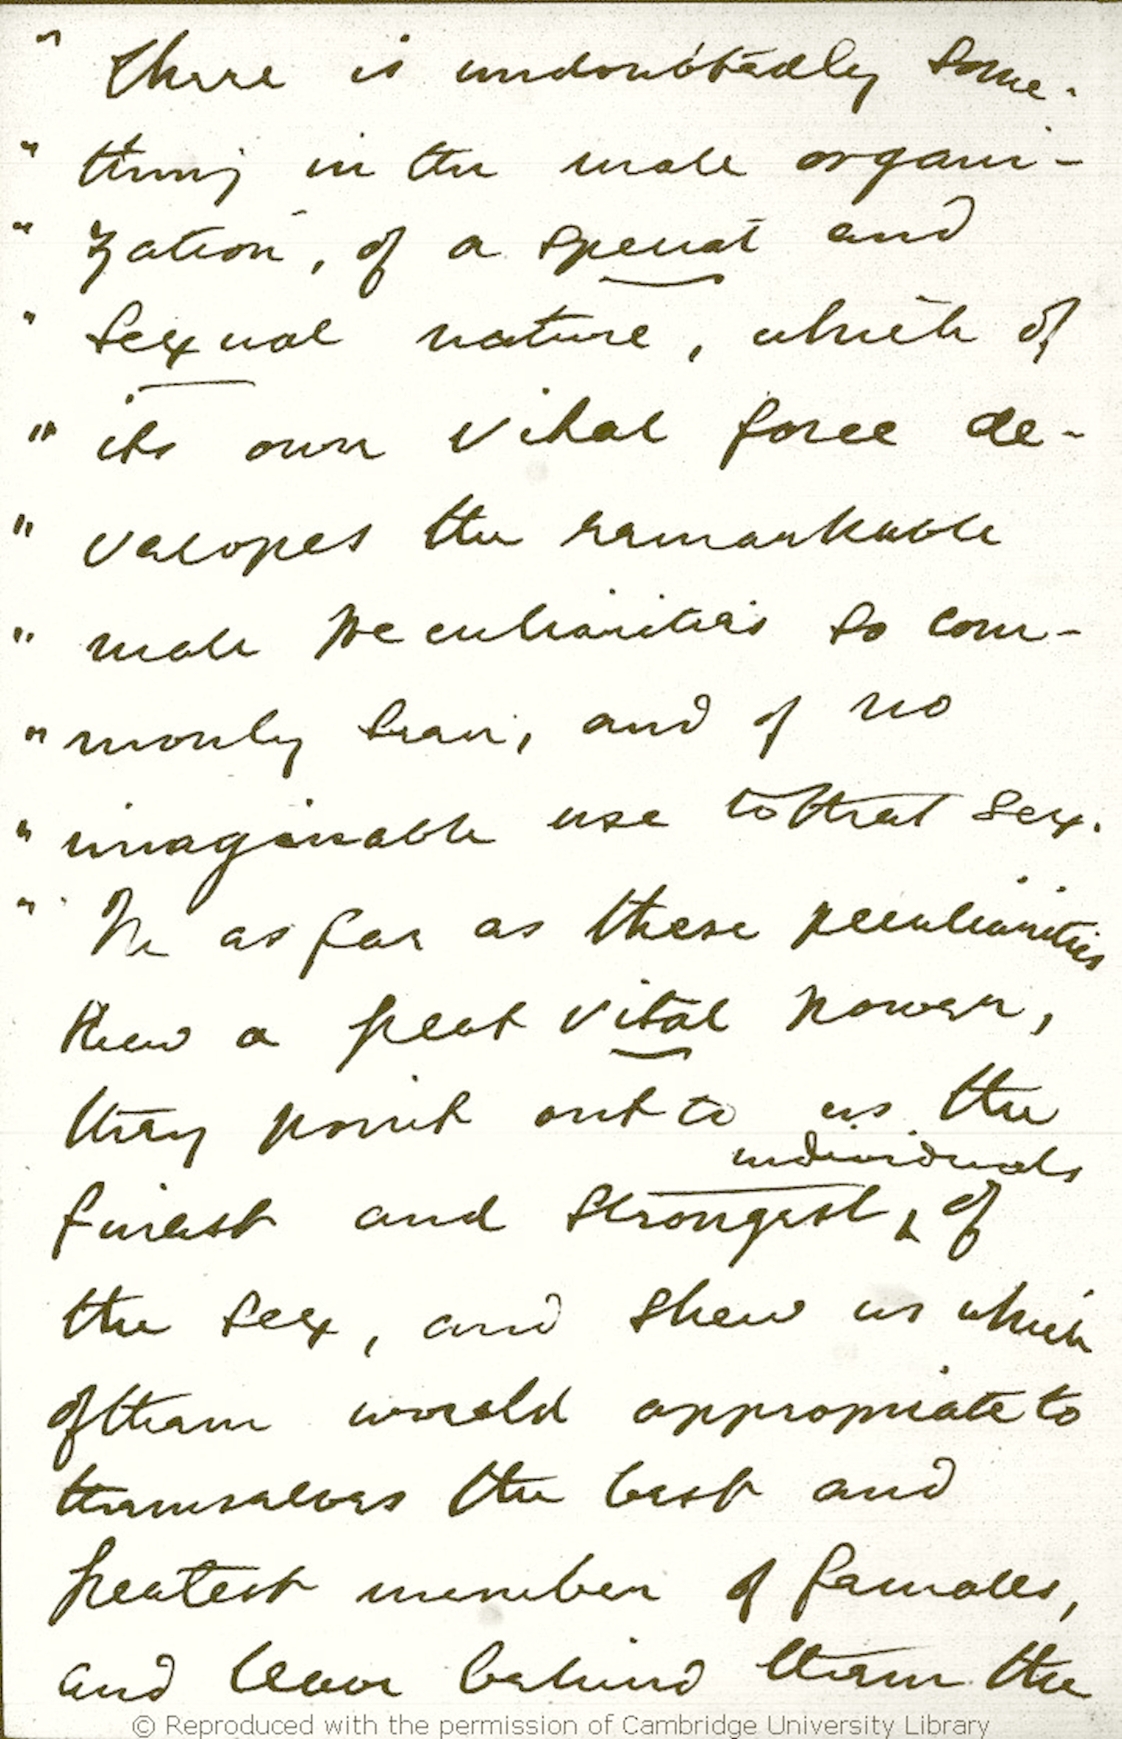 " There is undoubtedly some-
" thing in the male organi-
" zation, of a special and
" sexual nature, which of
" its own vital force de-
" velopes the remarkable
" male peculiarities so com-
" monly seen, and of no
" imaginable use to that sex.
" In as far as these peculiarities
shew a great vital power,
they point out to us the
individuals
finest and strongest, of
the sex, and shew us which
of them would appropriate to
themselves the best and
greatest number of females,
and leave behind them the
© Reproduced with the permission of Cambridge University Library